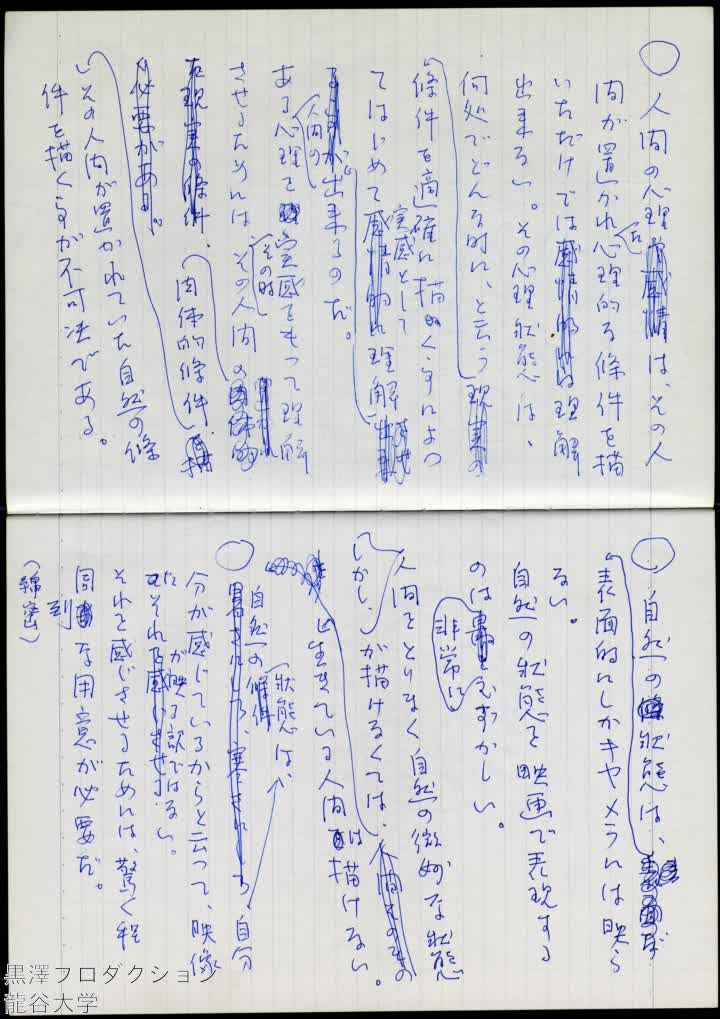 ○ 人間の心理は、その人
間が置かれた心理的な條件を描
いただけでは理解
出来ない。その心理狀態は、
何処でどんな時に、と云う
條件を適確に描くことによつ
てはじめて実感として理解
出来るのだ。
ある人間の心理を実感をもつて理解
させるためには、その時その人間の
肉体的條件、
その人間が置かれていた自然の條
件を描く事が不可欠である。
○ 自然の狀態は、
表面的にしかキヤメラには映ら
ない。
自然の狀態を映画で表現する
のは非常にむずかしい。
しかし、人間をとりまく自然の微妙な狀態
が描けなくては、
生きている人間は描けない。
○ 自然の狀態は、自分
分が感じているからと云つて、映像
にそれが映る訳ではない。
それを感じさせるためには、驚く程
周到な用意が必要だ。
(綿密)
黒澤プロダクション
龍谷大学